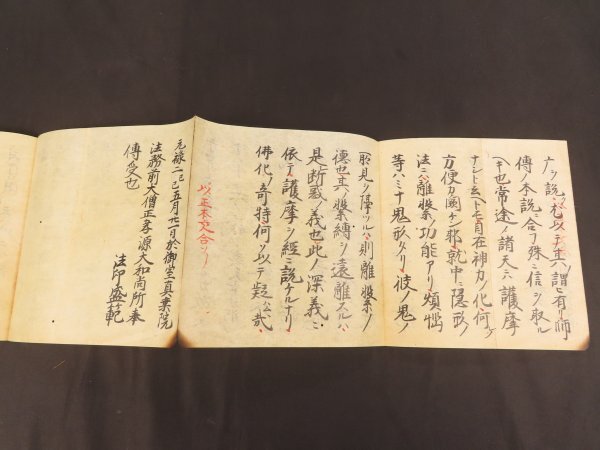 广ク説ク尤以テ正ハ謂ヒ有リ師
傳ノ本説ニ合フ殊ニ信ヲ取ル
キ也常途ノ諸天ニ護摩
ナレトモ自在神力ノ化何ソ
方便力國ナシ就中ニ隠形ノ
法ニハ離繋ノ功能アリ煩悩
等ハミナ鬼形ナリ彼ノ鬼ノ
所見ヲ障ルハ則離繋ノ
徳也其ノ繋縛ヲ遠離スルハ
是断惑ノ義也此ノ深義ニ
依テ護摩ヲ經ニ説タルナリ
佛化ノ奇特何ヲ以テ疑ハム哉
以正本交合了
元禄二己巳五月廿一日於御室真乗院
法務前大僧正孝源大和尚所奉
傳受也
法印盛範